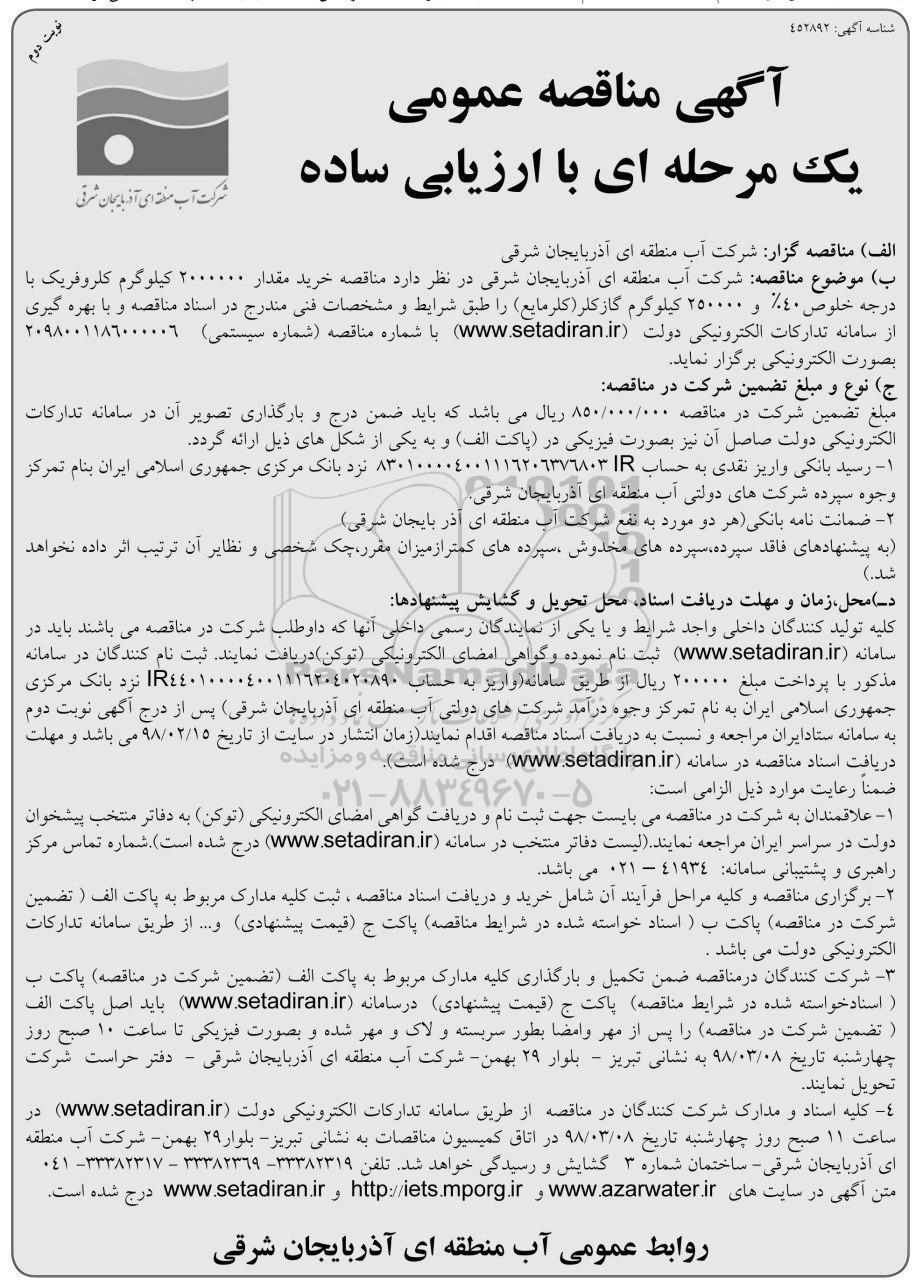 شناسه آگهی: ٤٥٢٨٩٢
نوبت دوم
آگهی مناقصه عمومی
یک مرحله ای با ارزیابی ساده
شرکت آب منطقه ای آذربایجان شرقی
الف) مناقصه گزار: شرکت آب منطقه ای آذربایجان شرقی
ب) موضوع مناقصه: شرکت آب منطقه ای آذربایجان شرقی در نظر دارد مناقصه خرید مقدار ٢٠٠٠٠٠٠ کیلوگرم کلروفریک با
درجه خلوص٤٠٪ و ٢٥٠٠٠٠ کیلوگرم گازکلر(کلرمایع) را طبق شرایط و مشخصات فنی مندرج در اسناد مناقصه و با بهره گیری
از سامانه تدارکات الکترونیکی دولت (www.setadiran.ir) با شماره مناقصه (شماره سیستمی) ٢٠٩٨٠٠١١٨٦٠٠٠٠٠٦
بصورت الکترونیکی برگزار نماید.
ج) نوع و مبلغ تضمین شرکت در مناقصه:
مبلغ تضمین شرکت در مناقصه ٨٥٠/٠٠٠/٠٠٠ ریال می باشد که باید ضمن درج و بارگذاری تصویر آن در سامانه تدارکات
الکترونیکی دولت صاصل آن نیز بصورت فیزیکی در (پاکت الف) و به یکی از شکل های ذیل ارائه گردد.
١- رسید بانکی واریز نقدی به حساب IR ٨٣٠١٠٠٠٠٤٠٠١١١٦٢٠٦٣٧٦٨٠٣ نزد بانک مرکزی جمهوری اسلامی ایران بنام تمرکز
وجوه سپرده شرکت های دولتی آب منطقه ای آذربایجان شرقی.
٢- ضمانت نامه بانکی(هر دو مورد به نفع شرکت آب منطقه ای آذر بایجان شرقی)
(به پیشنهادهای فاقد سپرده،سپرده های مخدوش ،سپرده های کمترازمیزان مقرر،چک شخصی و نظایر آن ترتیب اثر داده نخواهد
شد.)
د-)محل،زمان و مهلت دریافت اسناد، محل تحویل و گشایش پیشنهادها:
کلیه تولید کنندگان داخلی واجد شرایط و یا یکی از نمایندگان رسمی داخلی آنها که داوطلب شرکت در مناقصه می باشند باید در
سامانه (www.setadiran.ir) ثبت نام نموده وگواهی امضای الکترونیکی (توکن)دریافت نمایند. ثبت نام کنندگان در سامانه
مذکور با پرداخت مبلغ ٢٠٠٠٠٠ ریال از طریق سامانه(واریز به حساب IR٤٤٠١٠٠٠٠٤٠٠١١١٦٢٠٤٠٢٠٨٩٠ نزد بانک مرکزی
جمهوری اسلامی ایران به نام تمرکز وجوه درآمد شرکت های دولتی آب منطقه ای آذربایجان شرقی) پس از درج آگهی نوبت دوم
به سامانه ستادایران مراجعه و نسبت به دریافت اسناد مناقصه اقدام نمایند(زمان انتشار در سایت از تاریخ ٩٨/٠٢/١٥ می باشد و مهلت
دریافت اسناد مناقصه در سامانه (www.setadiran.ir) درج شده است).
ضمناً رعایت موارد ذیل الزامی است:
١- علاقمندان به شرکت در مناقصه می بایست جهت ثبت نام و دریافت گواهی امضای الکترونیکی (توکن) به دفاتر منتخب پیشخوان
دولت در سراسر ایران مراجعه نمایند.(لیست دفاتر منتخب در سامانه (www.setadiran.ir) درج شده است).شماره تماس مرکز
راهبری و پشتیبانی سامانه: ٤١٩٣٤ – ٠٢١ می باشد.
٢- برگزاری مناقصه و کلیه مراحل فرآیند آن شامل خرید و دریافت اسناد مناقصه ، ثبت کلیه مدارک مربوط به پاکت الف ( تضمین
شرکت در مناقصه) پاکت ب ( اسناد خواسته شده در شرایط مناقصه) پاکت ج (قیمت پیشنهادی) و... از طریق سامانه تدارکات
الکترونیکی دولت می باشد .
٣- شرکت کنندگان درمناقصه ضمن تکمیل و بارگذاری کلیه مدارک مربوط به پاکت الف (تضمین شرکت در مناقصه) پاکت ب
( اسنادخواسته شده در شرایط مناقصه) پاکت ج (قیمت پیشنهادی) درسامانه (www.setadiran.ir) باید اصل پاکت الف
( تضمین شرکت در مناقصه) را پس از مهر وامضا بطور سربسته و لاک و مهر شده و بصورت فیزیکی تا ساعت ١٠ صبح روز
چهارشنبه تاریخ ٩٨/٠٣/٠٨ به نشانی تبریز – بلوار ٢٩ بهمن- شرکت آب منطقه ای آذربایجان شرقی – دفتر حراست شرکت
تحویل نمایند.
٤- کلیه اسناد و مدارک شرکت کنندگان در مناقصه از طریق سامانه تدارکات الکترونیکی دولت (www.setadiran.ir) در
ساعت ١١ صبح روز چهارشنبه تاریخ ٩٨/٠٣/٠٨ در اتاق کمیسیون مناقصات به نشانی تبریز- بلوار٢٩ بهمن- شرکت آب منطقه
ای آذربایجان شرقی- ساختمان شماره ٣ گشایش و رسیدگی خواهد شد. تلفن ٣٣٣٨٢٣١٩- ٣٣٣٨٢٣٦٩ – ٣٣٣٨٢٣١٧- ٠٤١
متن آگهی در سایت های www.azarwater.ir و http://iets.mporg.ir و www.setadiran.ir درج شده است.
روابط عمومی آب منطقه ای آذربایجان شرقی
ParsNamadData
پایگاه اطلاع رسانی مناقصه و مزایده
٠٢١-٨٨٣٤٩٦٧٠-٥